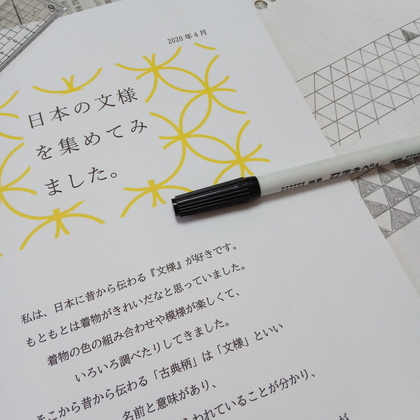 2020年4月
日本の文様
を集めてみ
ました。
私は、日本に昔から伝わる『文様』が好きです。
もともとは着物がきれいだなと思っていました。
着物の色の組み合わせや模様が楽しくて、
いろいろ調べたりしてきました。
そこから昔から伝わる「古典柄」は「文様」といい
名前と意味があり、
われていることが分かり、